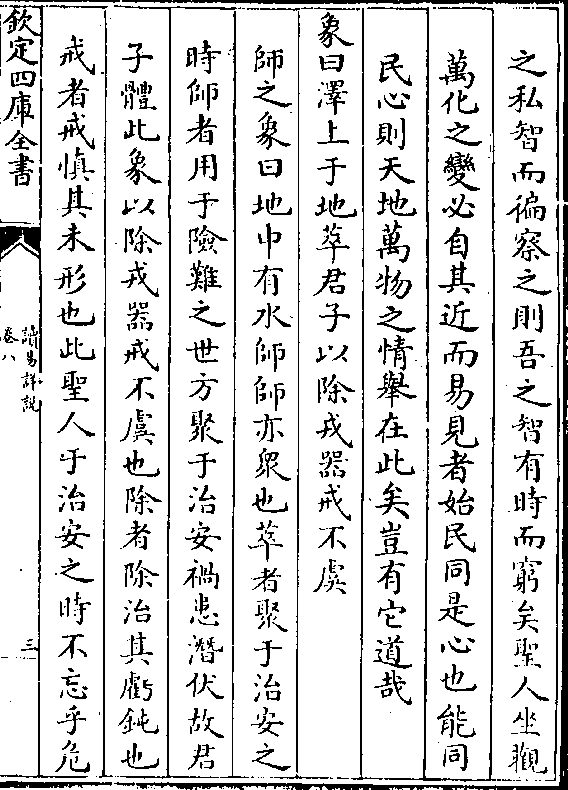 之私智而徧察之則吾之智有時而窮矣聖人坐觀
萬化之變必自其近而易見者始民同是心也能同
民心則天地萬物之情舉在此矣豈有它道哉
象曰澤上于地萃君子以除戎器戒不虞
師之象曰地中有水師師亦衆也萃者聚于治安之
時師者用于險難之世方聚于治安禍患潛伏故君
子體此象以除戎器戒不虞也除者除治其虧鈍也
戒者戒慎其未形也此聖人于治安之時不忘乎危
欽定四庫全書
讀易詳說
卷八
三